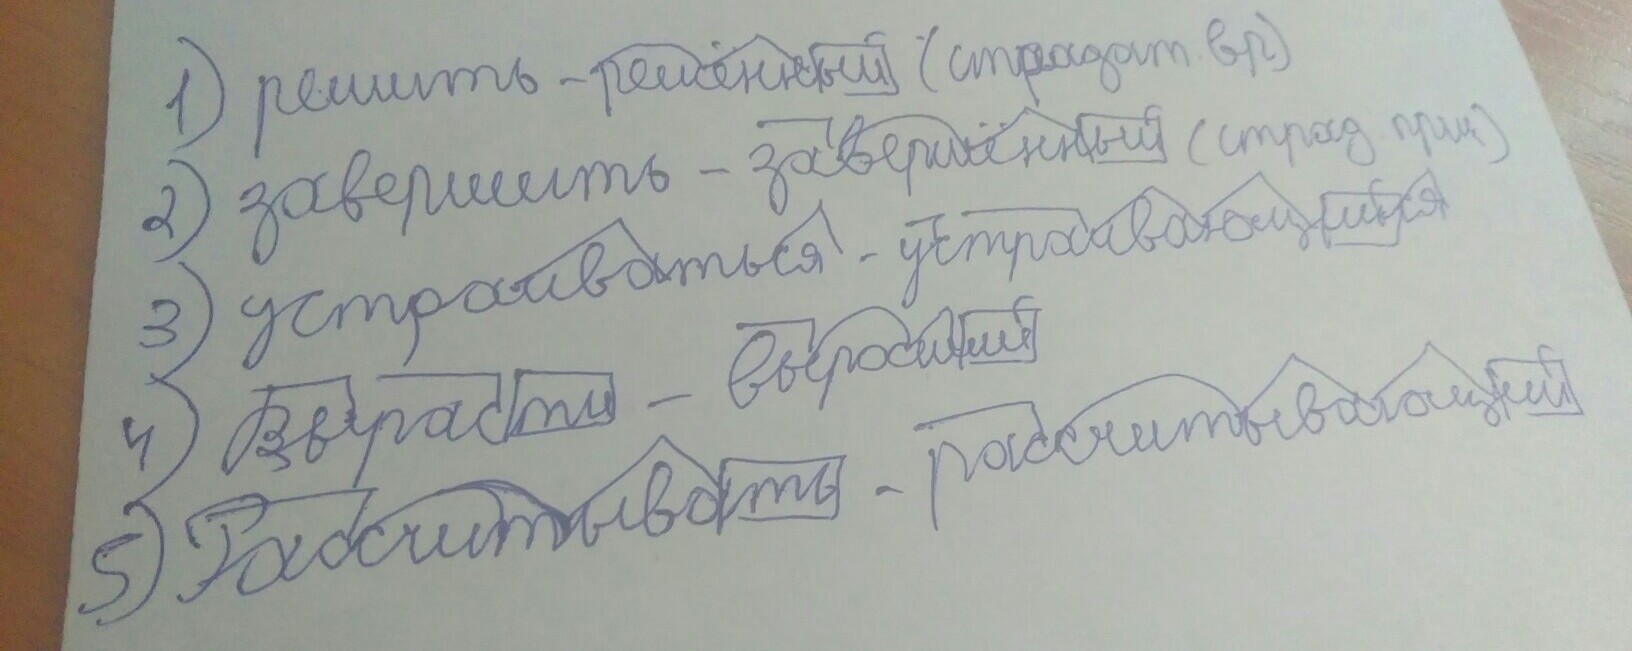 1) решить - решённый (страдат. вр)
2) завершить - завершённый (страд. прич)
3) устраиваться - устраивающийся
4) Вырасти - выросший
5) Рассчитывать - рассчитывающий